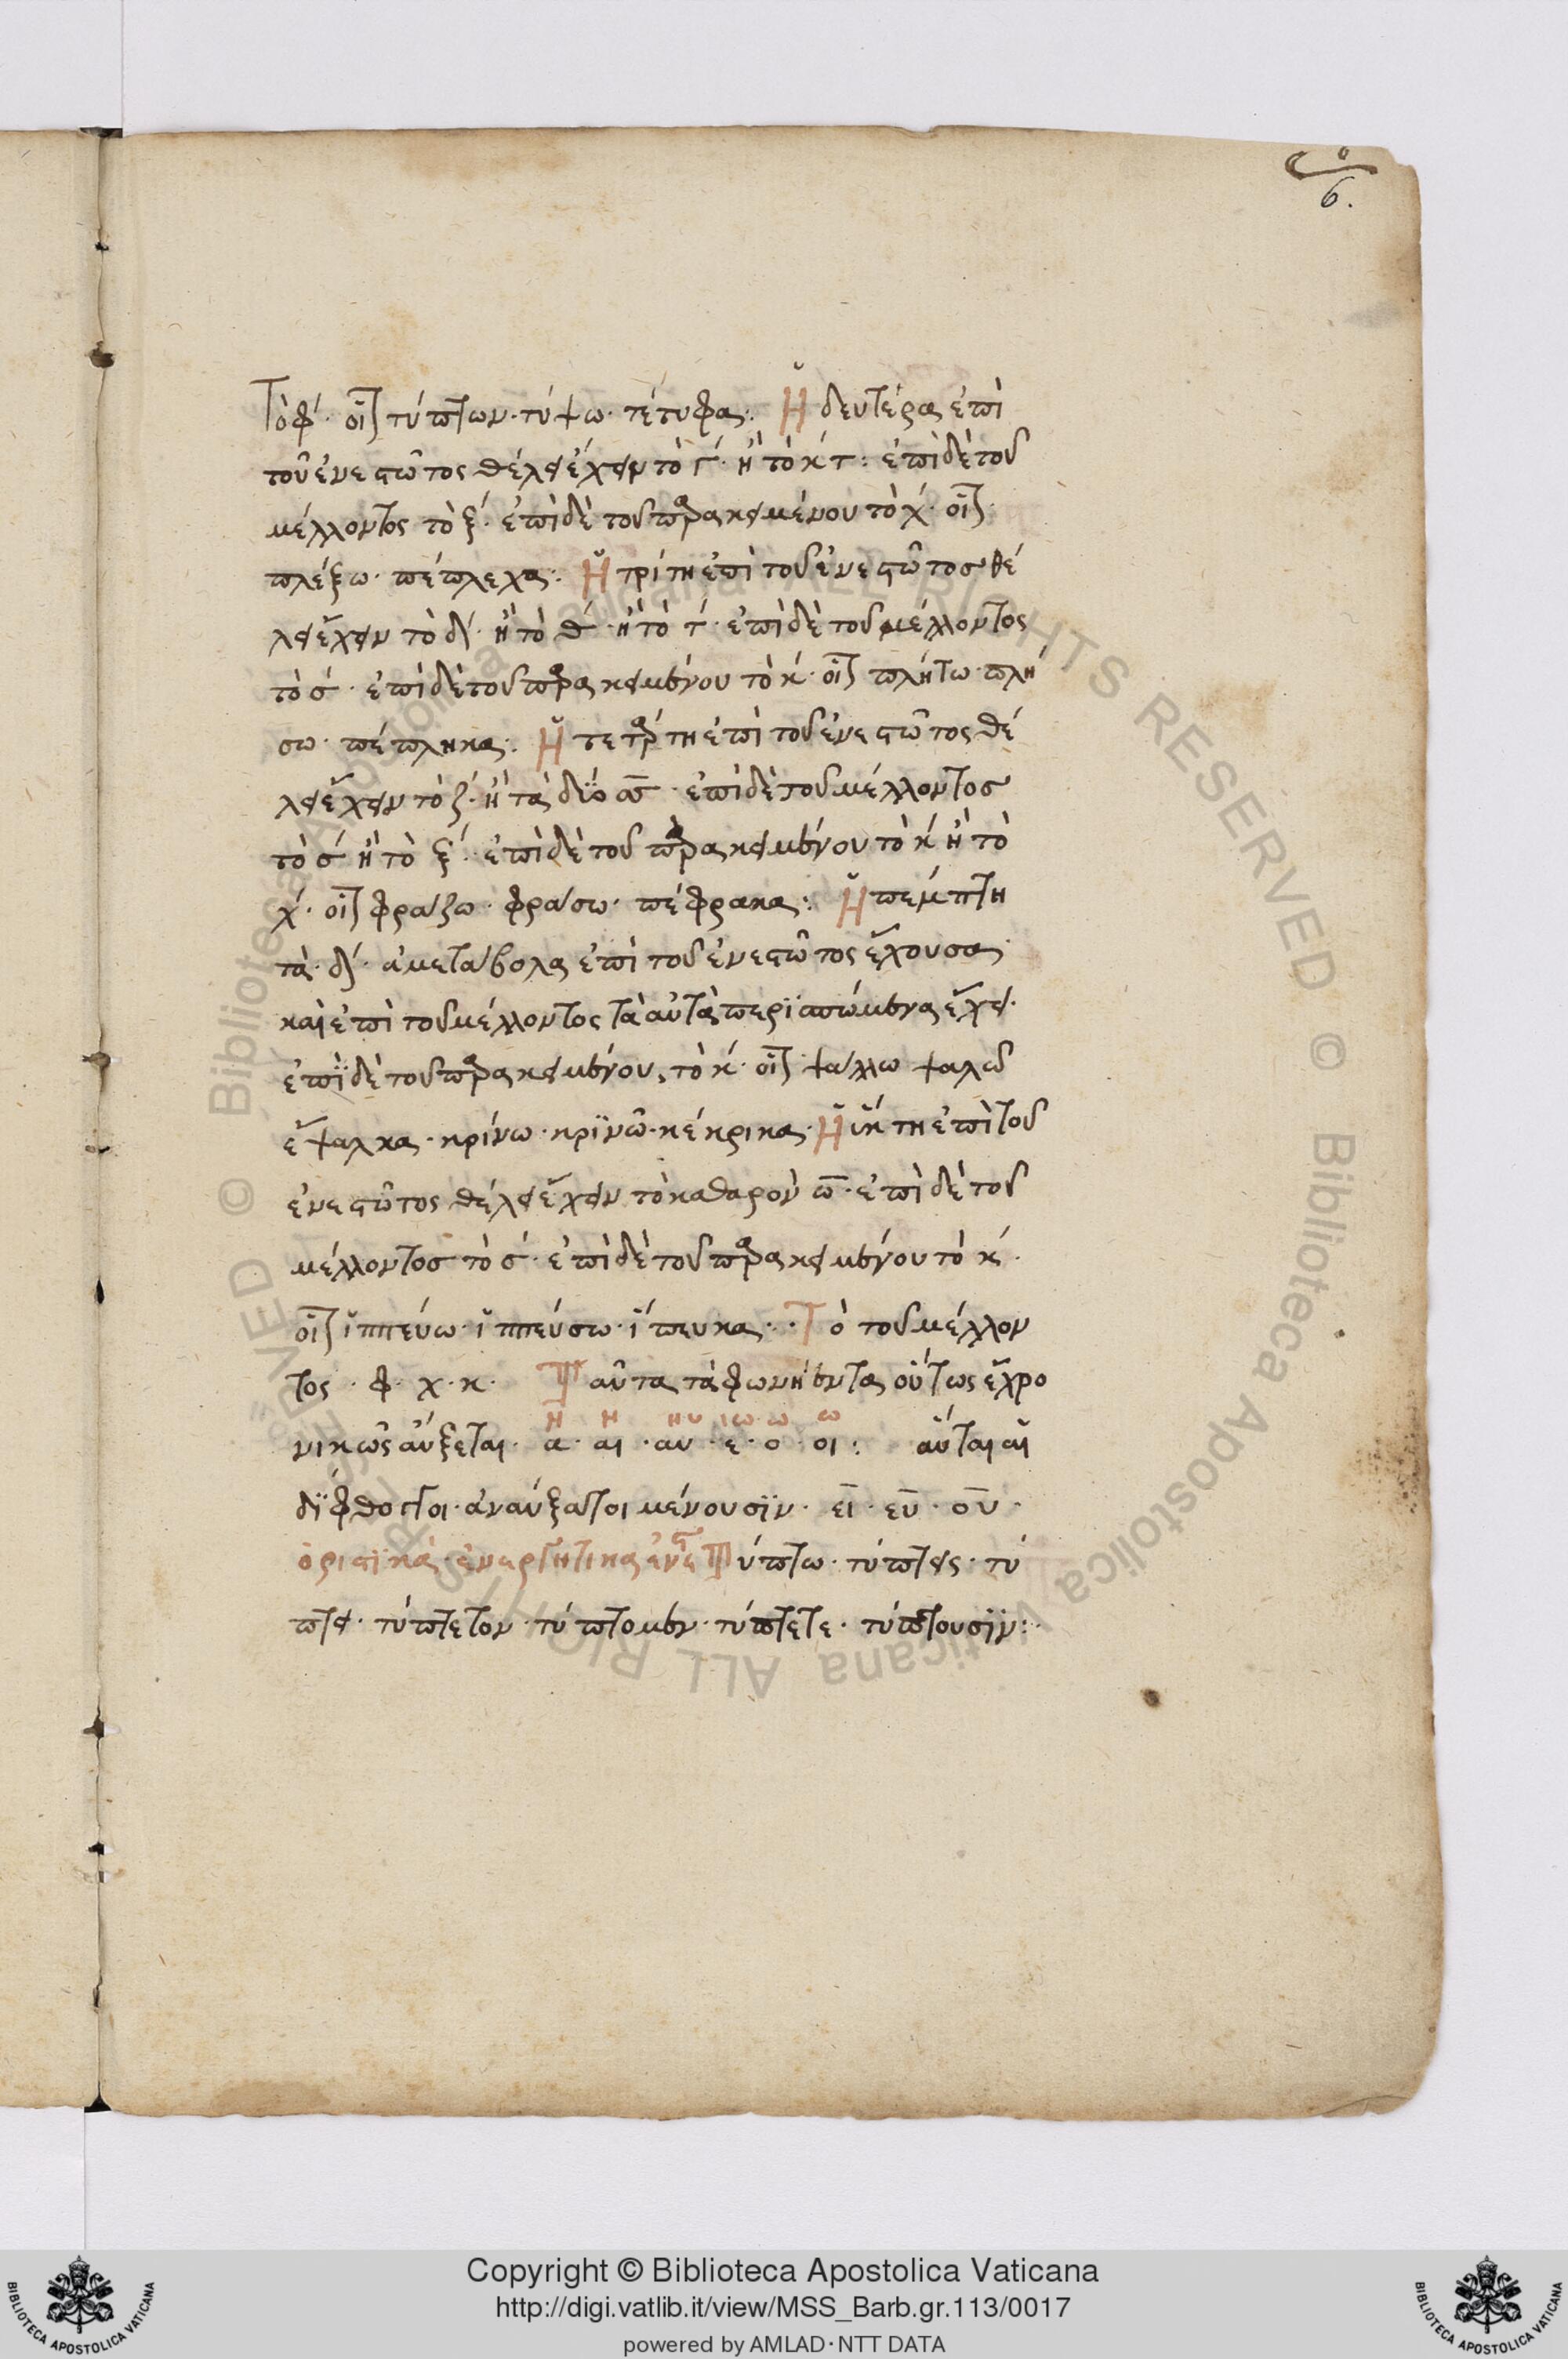 6.
Τὸ φ́· οἷ τύπτων· τύψω· τέτυφα: Ἡ δευτέρα ἐπὶ
τοῦ ἐνεστῶτος θέλει ἔχειν τὸ γ́· ἢ τὸ κτ: ἐπὶ δὲ τοῦ
μέλλοντος τὸ ξ́· ἐπὶ δὲ τοῦ παρακειμένου τὸ χ́· οἷ
πλέξω· πέπλεχα: Ἡ τρίτη ἐπὶ τοῦ ἐνεστῶτοσ θέ
λει ἔχειν τὸ δ́· ἢ τὸ θ́· ἢ τὸ τ́· ἐπὶ δὲ τοῦ μέλλοντος
τὸ σ́· ἐπὶ δὲ τοῦ παρακειμένου τὸ κ́· οἷ πλήτω πλή
σω· πέπληκα: Ἡ τετάρτη ἐπὶ τοῦ ἐνεστῶτος θέ
λει ἔχειν τὸ ζ́· ἢ τὰ δύο σσ· ἐπὶ δὲ τοῦ μέλλοντοσ
τὸ σ́ ἢ τὸ ξ́· ἐπὶ δὲ τοῦ παρακειμένου τὸ κ́ ἢ τὸ
χ́· οἷ φράζω· φράσω· πέφρακα: Ἡ πέμπτη
τὰ· δ́· ἀμετάβολα ἐπὶ τοῦ ἐνεστῶτος ἔχουσα
καὶ ἐπὶ τοῦ μέλλοντος τὰ αὐτὰ περϊσπώμενα ἔχει·
ἐπῒ δὲ τοῦ παρακειμένου, τὸ κ́· οἷ ψάλλω ψαλῶ
ἔψαλκα· κρίνω· κρϊνῶ· κέκρικα· Ἡ ἕκτη ἐπὶ τοῦ
ἐνεστῶτος θέλει ἔχειν τὸ καθαρὸν ω· ἐπὶ δὲ τοῦ
μέλλοντοσ τὸ σ́· ἐπὶ δὲ τοῦ παρακειμένου τὸ κ́·
οἷ ἱππεύω· ἱππεύσω· ἵπευκα· Τὸ τοῦ μέλλον
τος· φ· χ· κ· Ταῦτα τὰ φωνήεντα οὕτως ἔχρο
η η ηυ ω ω
νικῶς αὔξεται· α· αι· αυ· ε· ο· οι: αὗται αἱ
δΐφθογγοι· ἀναύξατοι μένουσϊν· ει· ευ· ου·
ὁριστϊκὰ· ἐνεργητικα ἐνε Τύπτω· τύπτεις· τύ
πτει· τύπτετον· τύπτομεν· τύπτετε· τύπτουσϊν:
Copyright © Biblioteca Apostolica Vaticana
http://digi.vatlib.it/view/MSS_Barb.gr.113/0017
powered by AMLAD·NTT DATA
BIBLIOTECA APOSTOLICA VATICANA
BIBLIOTECA APOSTOLICA VATICANA
© Biblioteca Apostolica Vaticana ALL RIGHTS RESERVED © Biblioteca Apostolica Vaticana ALL RIGHTS RESERVED